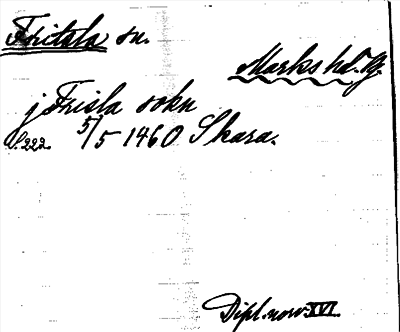 Fritsla sn.
Marks hd. Vg.
j Frisla sokn
S. 222. 5/5 1460 Skara.
Dipl. norv. XVI.